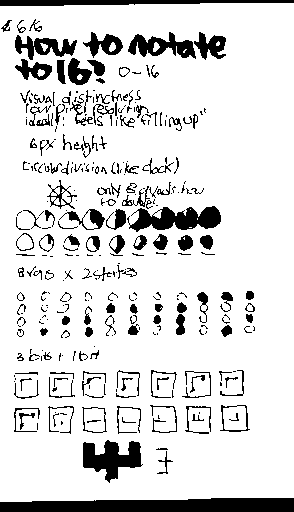 How to notate
to 16? 0-16
Visual distinctness
low pixel resolution
ideally: feels like "filling up"
6px height
Circular division (like clock)
only 8 quads. how
to double?
8 rots x 2 states
3 bits + 1 bit